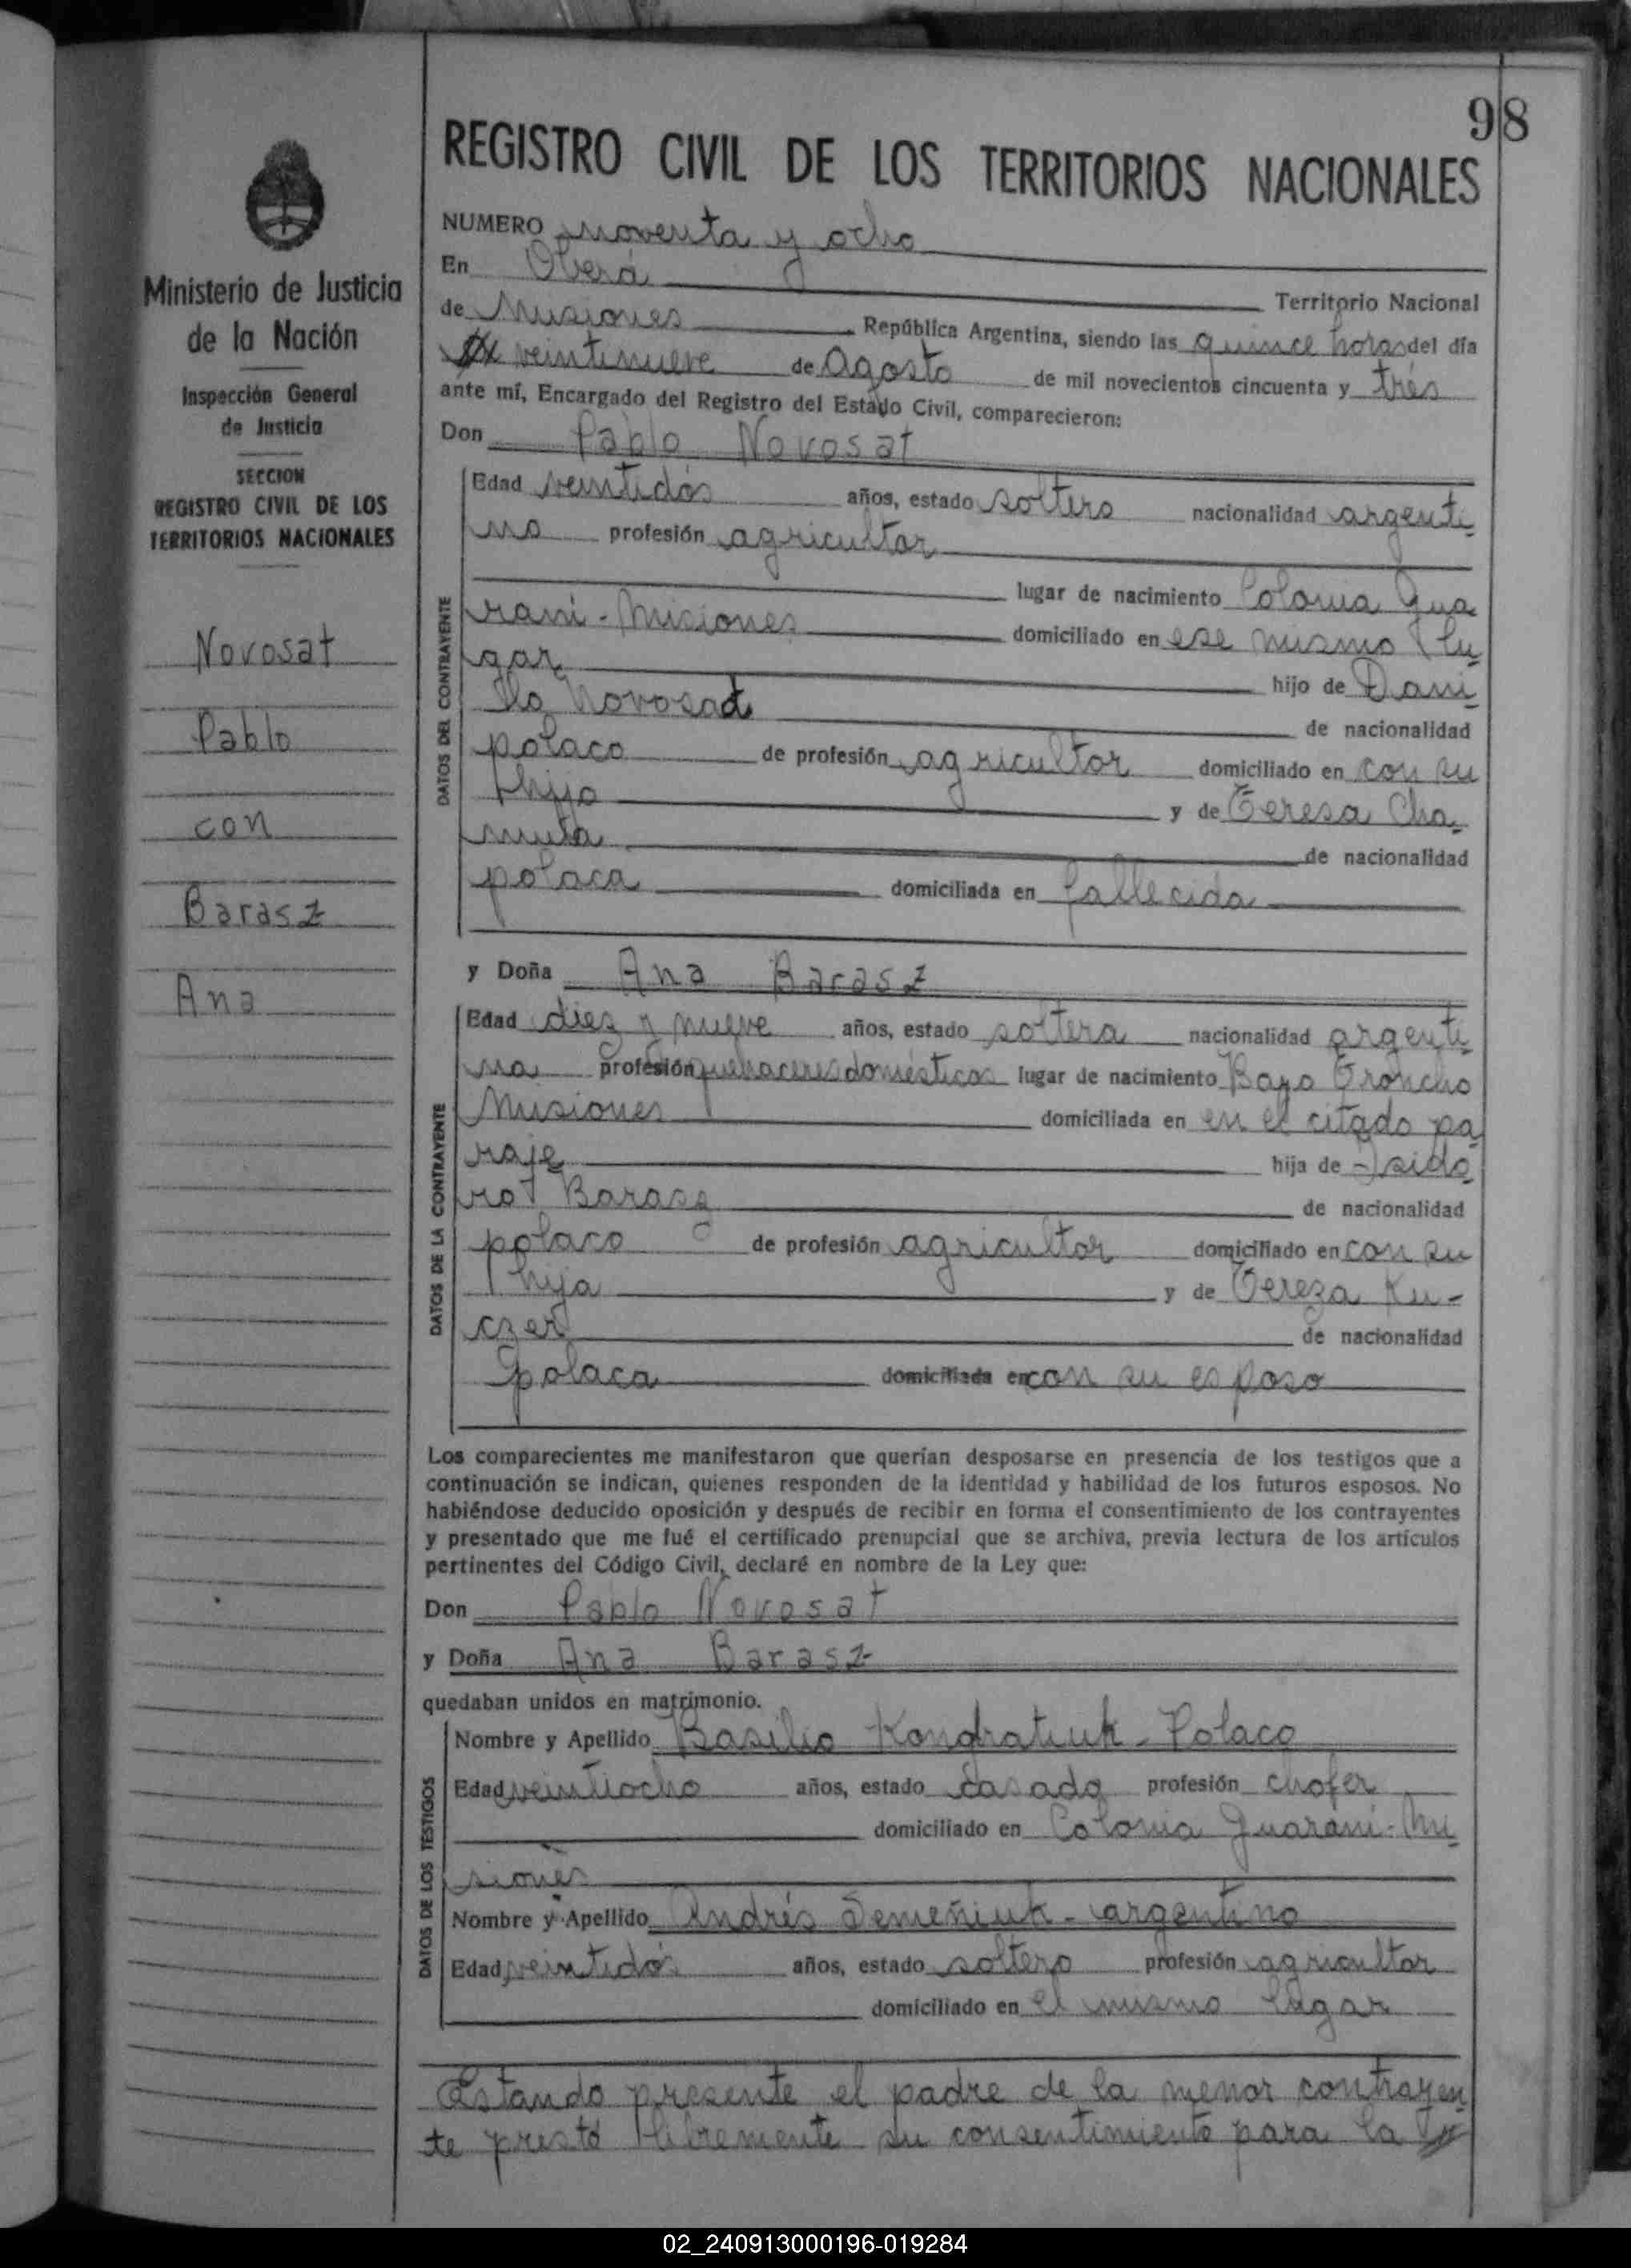 98
REGISTRO CIVIL DE LOS TERRITORIOS NACIONALES
Ministerio de Justicia
de la Nación
Inspección General
de Justicia
SECCION
REGISTRO CIVIL DE LOS
TERRITORIOS NACIONALES
Novosat
Pablo
con
Barasz
Ana
NUMERO noventa y ocho
En Oberá Territorio Nacional
de Misiones República Argentina, siendo las quince horas del día
veintinueve de Agosto de mil novecientos cincuenta y trés
ante mí, Encargado del Registro del Estado Civil, comparecieron:
Don Pablo Novosat
DATOS DEL CONTRAYENTE
Edad veintidós años, estado soltero nacionalidad argenti-
no profesión agricultor
lugar de nacimiento Colonia Gua
rani - Misiones domiciliado en ese mismo lu-
gar hijo de Dani-
lo Novosad de nacionalidad
polaco de profesión agricultor domiciliado en con su
hijo y de Teresa Cha-
muta de nacionalidad
polaca domiciliada en fallecida
y Doña Ana Barasz
DATOS DE LA CONTRAYENTE
Edad diez y nueve años, estado soltera nacionalidad argenti-
na profesión quehaceres domésticos lugar de nacimiento Bayo Troncho
Misiones domiciliada en en el citado pa-
raje hija de Isido-
ro Barasz de nacionalidad
polaco de profesión agricultor domiciliado en con su
hija y de Tereza Ku-
czer de nacionalidad
polaca domiciliada en con su esposo
Los comparecientes me manifestaron que querían desposarse en presencia de los testigos que a
continuación se indican, quienes responden de la identidad y habilidad de los futuros esposos. No
habiéndose deducido oposición y después de recibir en forma el consentimiento de los contrayentes
y presentado que me fué el certificado prenupcial que se archiva, previa lectura de los artículos
pertinentes del Código Civil, declaré en nombre de la Ley que:
Don Pablo Novosat
y Doña Ana Barasz
quedaban unidos en matrimonio.
DATOS DE LOS TESTIGOS
Nombre y Apellido Basilio Kondratiuk - Polaco
Edad veintiocho años, estado casado profesión chofer
domiciliado en Colonia Guaraní - Mi-
siones
Nombre y Apellido Andrés Semeñiuk - argentino
Edad veintidós años, estado soltero profesión agricultor
domiciliado en el mismo lugar
Estando presente el padre de la menor contrayen-
te prestó libremente su consentimiento para la
02_240913000196-019284